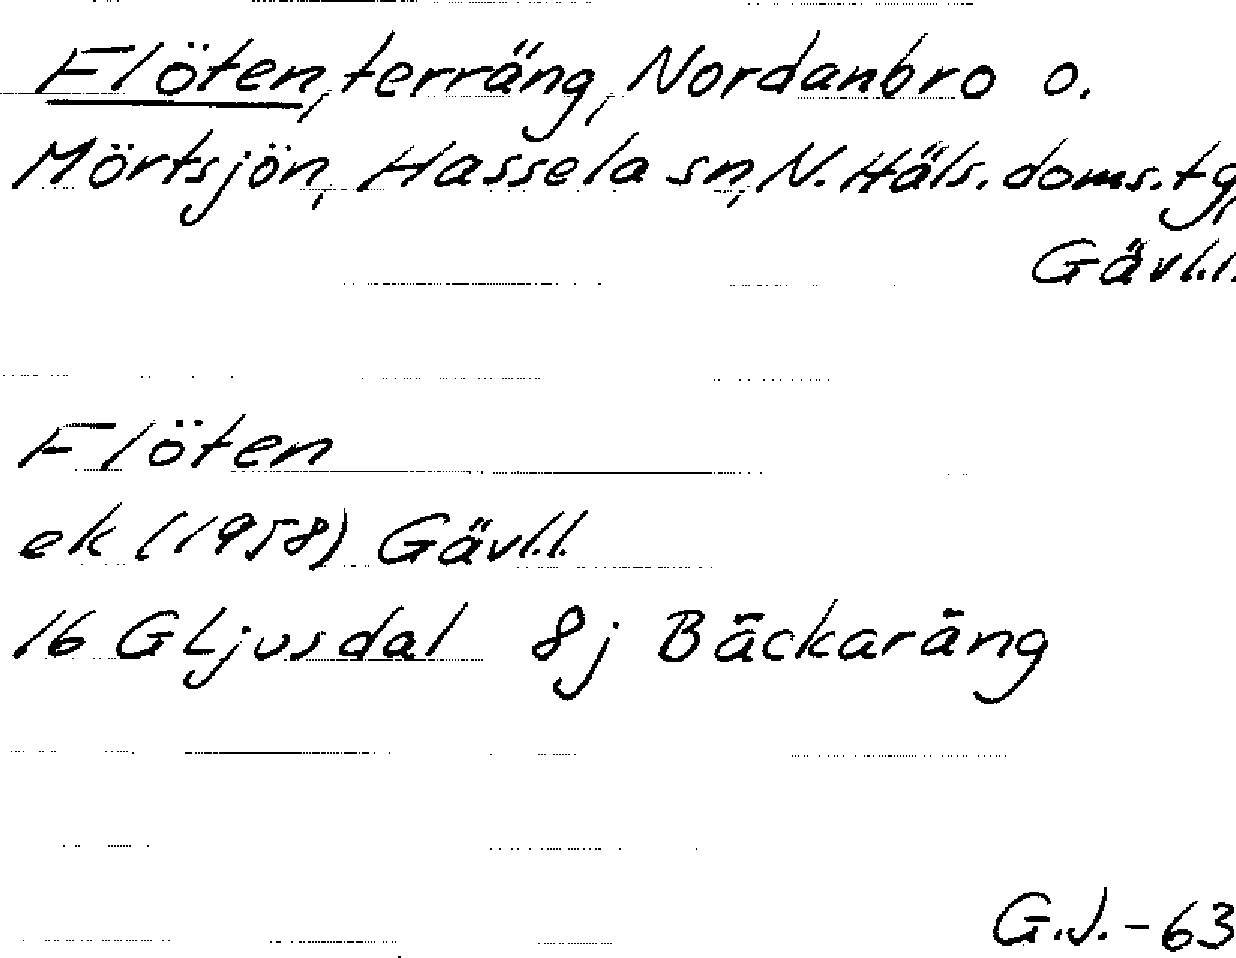 Flöten, terräng, Nordanbro o.
Mörtsjön, Hassela sn, N. Häls. doms. tg,
Gävl.l.
Flöten
ek (1958) Gävl.l.
16 G Ljusdal 8j Bäckaräng
G.J. - 63